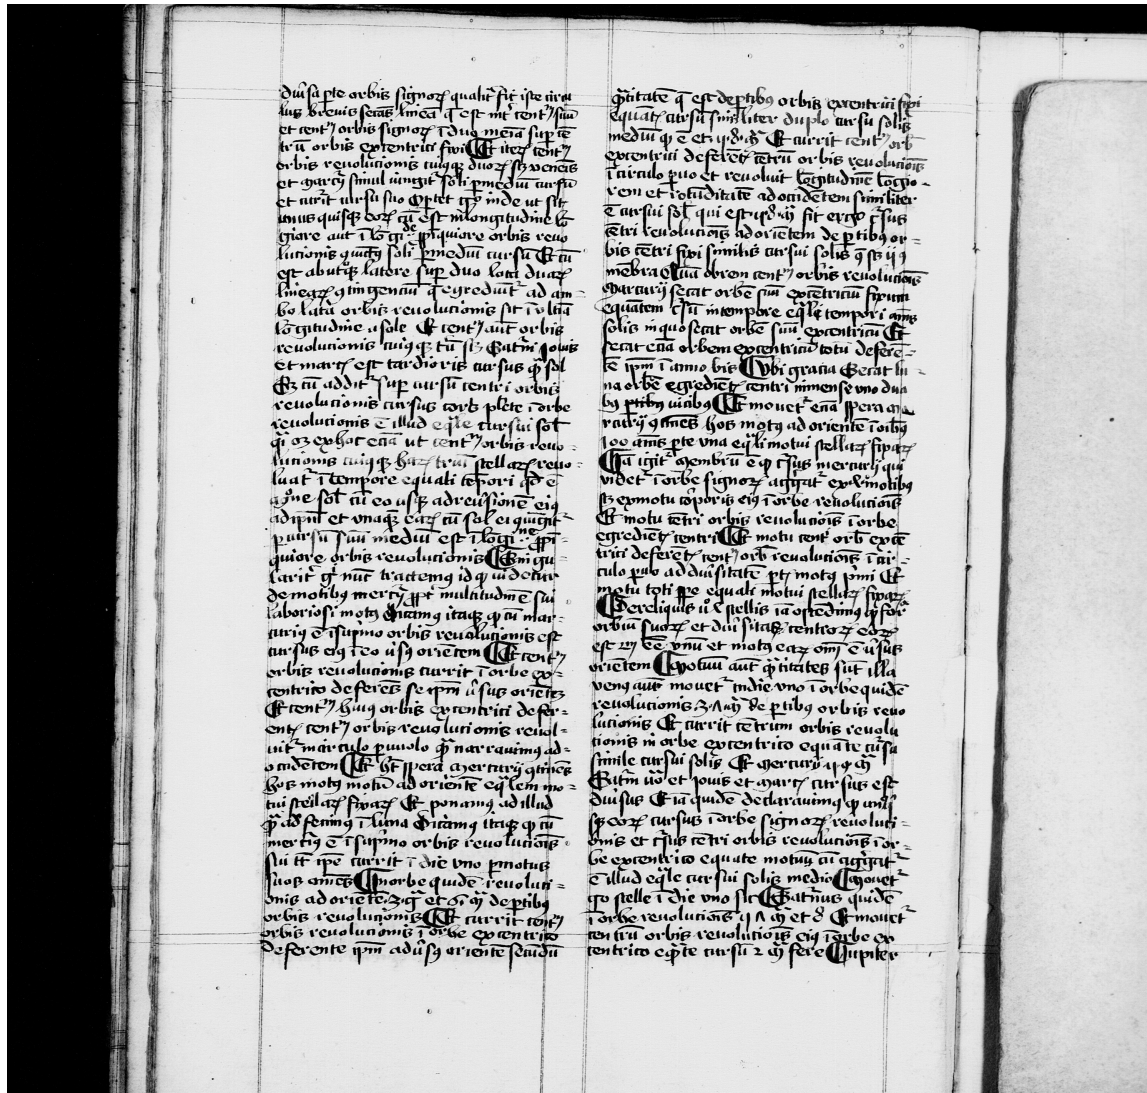 diūsa ꝑte orbis signoꝝ qualit᷑ sit iste circu
lus brevis secās lineā q̄ est int̄ cent᷑ suū
et cent᷑ orbis signoꝝ ī duo media suꝑ cē
trū orbis excentrici fixi Et iteꝝ cent᷑
orbis revolucionis cuiusqꝫ duoꝝ sꝫ veneris
et marcꝰ simul iūngit᷑ soli ꝑ mediū cursū
et currit cursu suo Oportet gͦ inde ut sit
unusquisqꝫ eoꝝ cū est in longitudine lō
giore aut ī lōgide ꝓpīquiore orbis revo
lucionis ꝑ mediū cursū Et cū
est ab utroqꝫ latere suꝑ duo loca duaꝝ
lineaꝝ ꝯtingenciū q̄ egrediūt᷑ ad am
bo lat̄a orbis revolucionis sit ī ultīa
lōgitudine a sole Et cent᷑ aūt orbis
revolucionis cuiusqꝫ triū sꝫ Sat̄ni Jovis
et marcꝭ est tardioris cursus qͣ sol
Sꝫ cū addit᷑ suꝑ cursū centri orbis
revolucionis cursus corꝑis plēte ī orbe
revolucionis ē illud eqͣle cursui sol
ex hoc eciā ut cent᷑ orbis revo-
lucionis cuiusqꝫ haꝝ triū stellaꝝ revo-
luat᷑ ī tempore equali tēpori qd̄ ē
sol cū eo usqꝫ ad reūsionē eiꝰ
ad ipm̄ et unaqꝫ eaꝝ cū sol ei iūngit᷑
ꝑ cursū suū mediū est ī lōgine ꝓpī-
quiore orbis revolucionis Singu
larit᷑ gͦ nūc tractemus id qd̄ videtur
de motibus mercꝰ ꝓpt̄ multitudinē sui
laboriosi motꝰ dicamus itaqꝫ qꝫ cū mer-
curius ē ī sup̄mo orbis revolucionis est
cursus eiꝰ ī eo ūsꝰ orientem Et cent᷑
orbis revolucionis currit ī orbe ex-
centrico deferēs se ipm̄ ūsus orientē
Et cent᷑ huiꝰ orbis excentrici defer-
entꝭ cent᷑ orbis revolucionis revol-
vit᷑ in circulo ꝑvulo qͫ narravimus ad
occidentem Et hꝫ spera mercurij ꝯtinēs
hos motꝰ motū ad orientē eqͣlem mo-
tui stellaꝝ fixaꝝ Et ponamꝰ ad illud
qd̄ fecimus ī luna dicamus itaqꝫ qꝫ cū
mercꝰius ē ī sup̄mo orbis revolucionis
sui tc̄ ipe currit ī die uno ꝑ motus
suos om̄es In orbe quidē revoluci-
onis ad orientē 3 gͣ et 6 m̄ de ꝑtibus
orbis revolucionis Et currit cent᷑
orbis revolucionis ī orbe excentrico
deferente ipm̄ ad ūsꝰ orientē secundū
qͣntitatē q̄ est de ꝑtibus orbis excentrici fixi
equatꝭ cursū similiter duplo cursu solis
mediū qꝫ ē Et currit cent᷑ orb
excentrici deferentꝭ cētrū orbis revolucionis
ī circulo ꝑvo et revolvit lōgitudinē lōgio-
rem et rotūditatē ad occidētem similiter
ē cursui sol qui est fit ergo c̄sus
cētri revolucionis ad orientem de ꝑtibus or-
bis cētri fixi similis cursui solis
mēbra Quā obrem cent᷑ orbis revolucionis
Mercurij secat orbē suū excētricum fixum
equantem c̄sū in tempore eqͣli tempori anni
solis in quo secat orbē suū excentricū Et
secat eciā orbem excentricū totū deferē-
tē ipm̄ ī anno bis Verbi gracia Secat lu-
na orbē egredientꝭ centri in mense uno dua
bꝰ ꝑtibus vicibus Et movet᷑ eciā spera me
rcurij ꝯtinēs hos motus ad orientē ī oībus
100 annis ꝑte una eqͣli motui stellaꝝ fixaꝝ
Jā igit᷑ membrū ē qꝫ c̄sus mercurij qui
videt᷑ ī orbe signoꝝ aggregat᷑ ex motibus
sꝫ ex motu corporis eiꝰ ī orbe revolucionis
Et motu cētri orbis revolucionis ī orbe
egredientꝭ centri Et motu centꝭ orb excē
trici deferentꝭ cent᷑ orb revolucionis ī cir-
culo ꝑvo ad diūsitatē ꝑtꝭ motus p̄mi Et
motu toti spere equali motui stellaꝝ fixaꝝ
De reliquis ūo stellis iā ostēdimus qꝫ for
orbiū suoꝝ et diūsitas centroꝝ eoꝝ
est ēē unū et motus eaꝝ om̄ ē ūsus
orientem Motuū aūt qͣntitates sūt ille
venꝰ aūt movet᷑ in die uno ī orbe quidē
revolucionis de ꝑtibus orbis revo
lucionis Et currit cētrum orbis revolu
cionis in orbe excentrico equāte cursu
simile cursui solis Et mercurij
Sat̄ni ūo et Jovis et marcꝭ cursus est
diūsus Et iā quidē declaravimus qꝫ uniꝰ
cuiusqꝫ eoꝝ cursus ī orbe signoꝝ revoluci-
onis et c̄sus cētri orbis revolucionis ī or-
be excentrico equate motuū cū aggregat᷑
ē illud eqͣle cursui solis medio Movet᷑
gͦ stelle ī die uno sic Sat̄nus quidē
ī orbe revolucionis Et movet᷑
centrū orbis revolucionis eiꝰ ī orbe ex
centrico eqͣte cursū 2 m̄ fere Jupiter